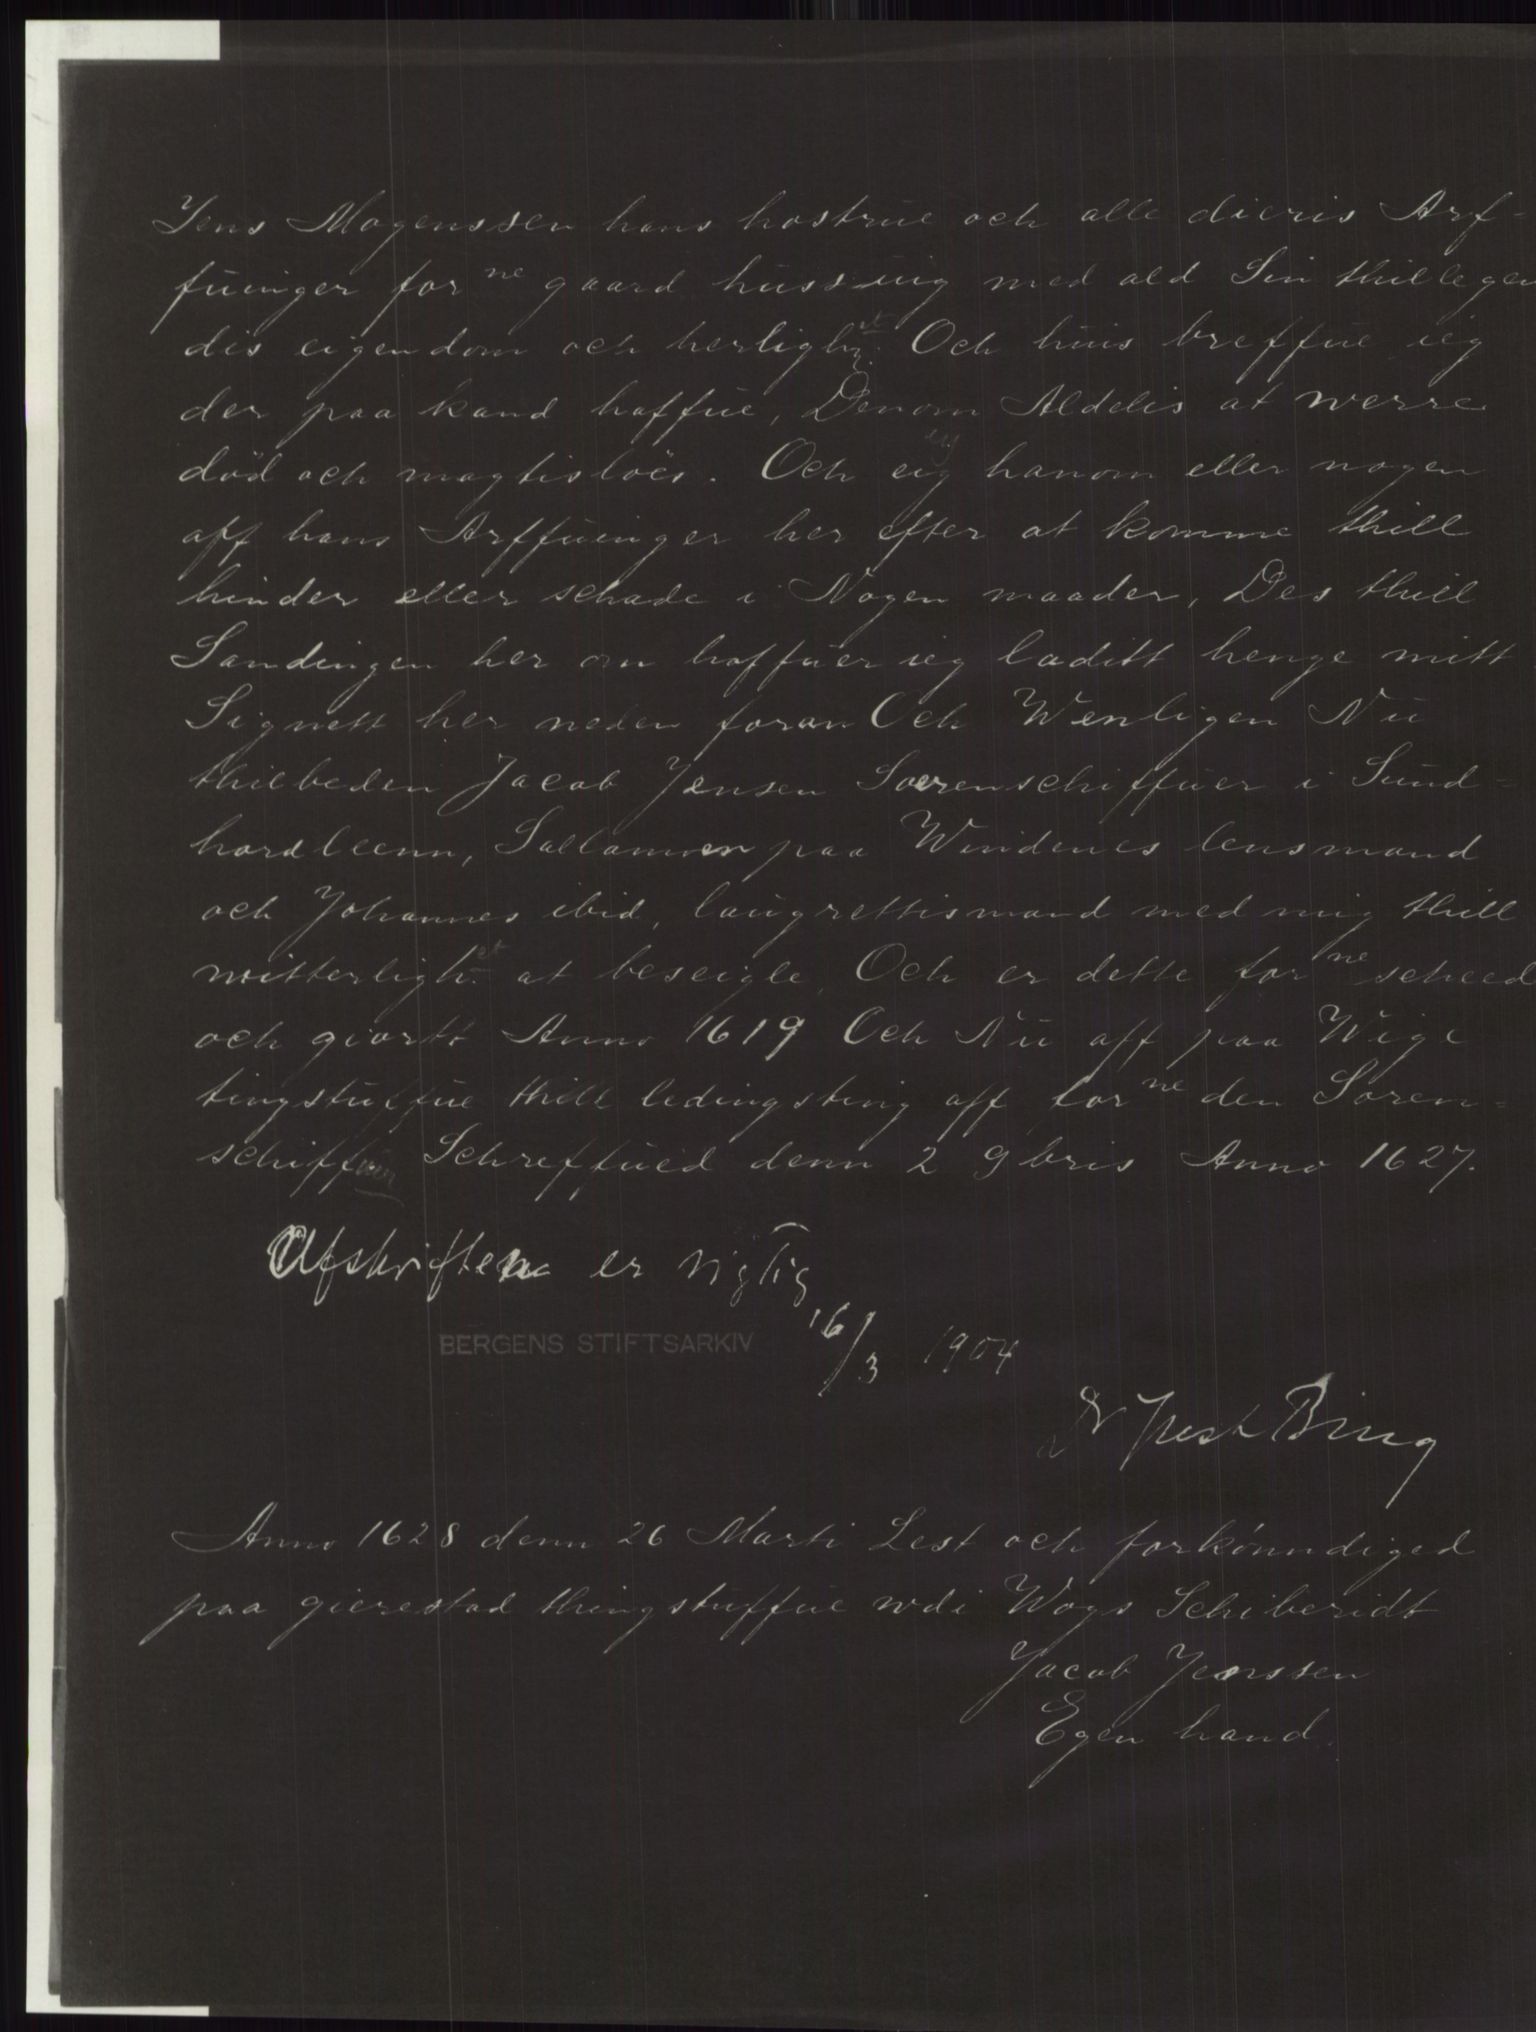 Jens Mogenssen hans hostrue och alle dieris Arf-
fuinger for ne gaard hussuig med ald Sin thillegen
dis eigendom och herligh et. Och huis breffue ieg
der paa kand haffue, Denom Aldelis at werre
død och magtisløes. Och eig hanom eller nogen
aff hans Arffuinger her efter at komme thill
hinder eller schade i Nogen maader, Des thill
Sandingen her om haffuer ieg laditt henge mitt
Signett her neden foran Och Wenligen Nu
thilbeden Jacob Jensen Soerenschiffuer i Sund=
hordleenn, Sallamon paa Windenes lensmand
och Johannes ibid, laugrettismand med mig thill
witterligh et at beseigle, Och er dette for ne scheed
och giortt Anno 1619 Och Nu aff paa Wige
tingstuffue thill ledingsting aff for ne den Soren=
schiffuer Schreffued denn 2 9bris Anno 1627.
Afskriften er rigtig
BERGENS STIFTSARKIV 16/3 1904
Dr Just Bing
Anno 1628 denn 26 Marti Lest och forkønndiged
paa gierestad thingstuffue wdi Wogs Schiberidt
Jacob Jenssen
Egen hand.